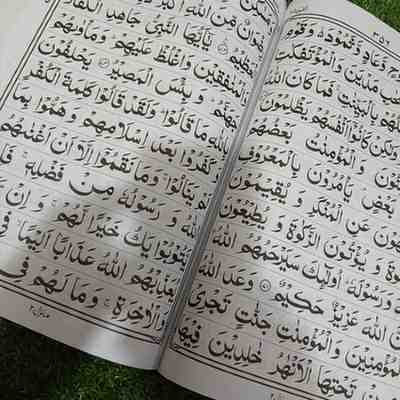 ٣٥٦
وَّعَادٍ وَّثَمُوْدَ ۙ وَقَوْمِ
مَدْيَنَ وَالْمُؤْتَفِكٰتِ
بِالْبَيِّنٰتِ ۚ فَمَا كَانَ اللّٰهُ
وَلٰكِنْ كَانُوْٓا اَنْفُسَهُمْ يَظْلِمُوْنَ
وَالْمُؤْمِنٰتُ بَعْضُهُمْ
بَعْضٍ ۘ يَاْمُرُوْنَ بِالْمَعْرُوْفِ
عَنِ الْمُنْكَرِ وَ يُقِيْمُوْنَ
وَ يُؤْتُوْنَ الزَّكٰوةَ وَ يُطِيْعُوْنَ
وَ رَسُوْلَهٗ ؕ اُولٰٓئِكَ سَيَرْحَمُهُمُ اللّٰهُ
اِنَّ اللّٰهَ عَزِيْزٌ حَكِيْمٌ وَعَدَ اللّٰهُ
الْمُؤْمِنِيْنَ وَ الْمُؤْمِنٰتِ جَنّٰتٍ تَجْرِيْ
مِنْ تَحْتِهَا الْاَنْهٰرُ خٰلِدِيْنَ فِيْهَا
مِّنَ اللّٰهِ اَكْبَرُ
الْعَظِيْمُ يٰٓاَيُّهَا النَّبِيُّ جَاهِدِ الْكُفَّارَ
وَالْمُنٰفِقِيْنَ وَاغْلُظْ عَلَيْهِمْ ؕ وَمَاْوٰىهُمْ
جَهَنَّمُ ؕ وَ بِئْسَ الْمَصِيْرُ يَحْلِفُوْنَ
بِاللّٰهِ مَا قَالُوْا ؕ وَلَقَدْ قَالُوْا كَلِمَةَ الْكُفْرِ
وَكَفَرُوْا بَعْدَ اِسْلَامِهِمْ وَهَمُّوْا بِمَا
لَمْ يَنَالُوْا ۚ وَمَا نَقَمُوْٓا اِلَّآ اَنْ اَغْنٰىهُمُ
اللّٰهُ وَ رَسُوْلُهٗ مِنْ فَضْلِهٖ ۚ فَاِنْ
يَّتُوْبُوْا يَكُ خَيْرًا لَّهُمْ ۚ وَ اِنْ
يُعَذِّبْهُمُ اللّٰهُ عَذَابًا اَلِيْمًا ۙ فِي
وَالْاٰخِرَةِ ۚ وَمَا لَهُمْ فِي
منزل ٢